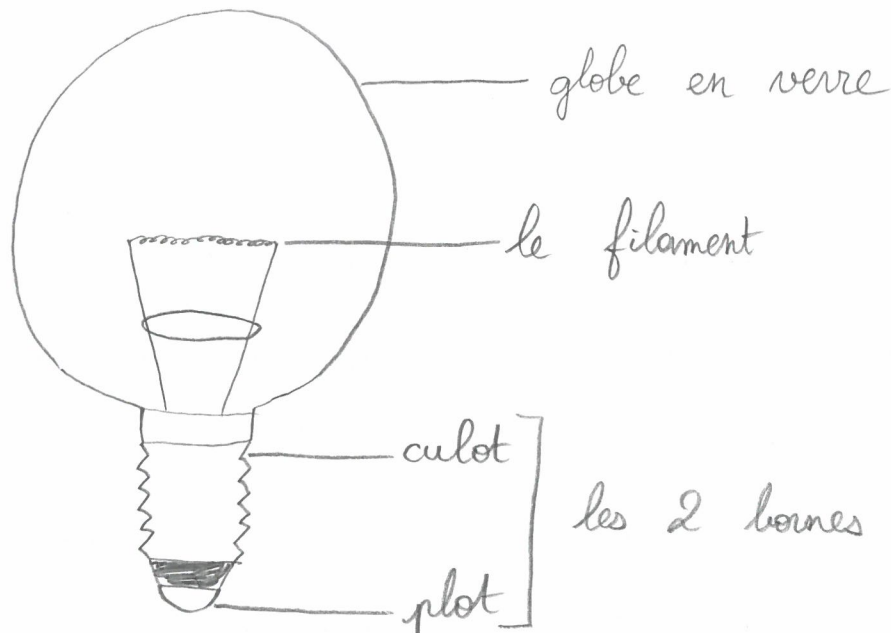 globe en verre
le filament
culot
les 2 bornes
plot